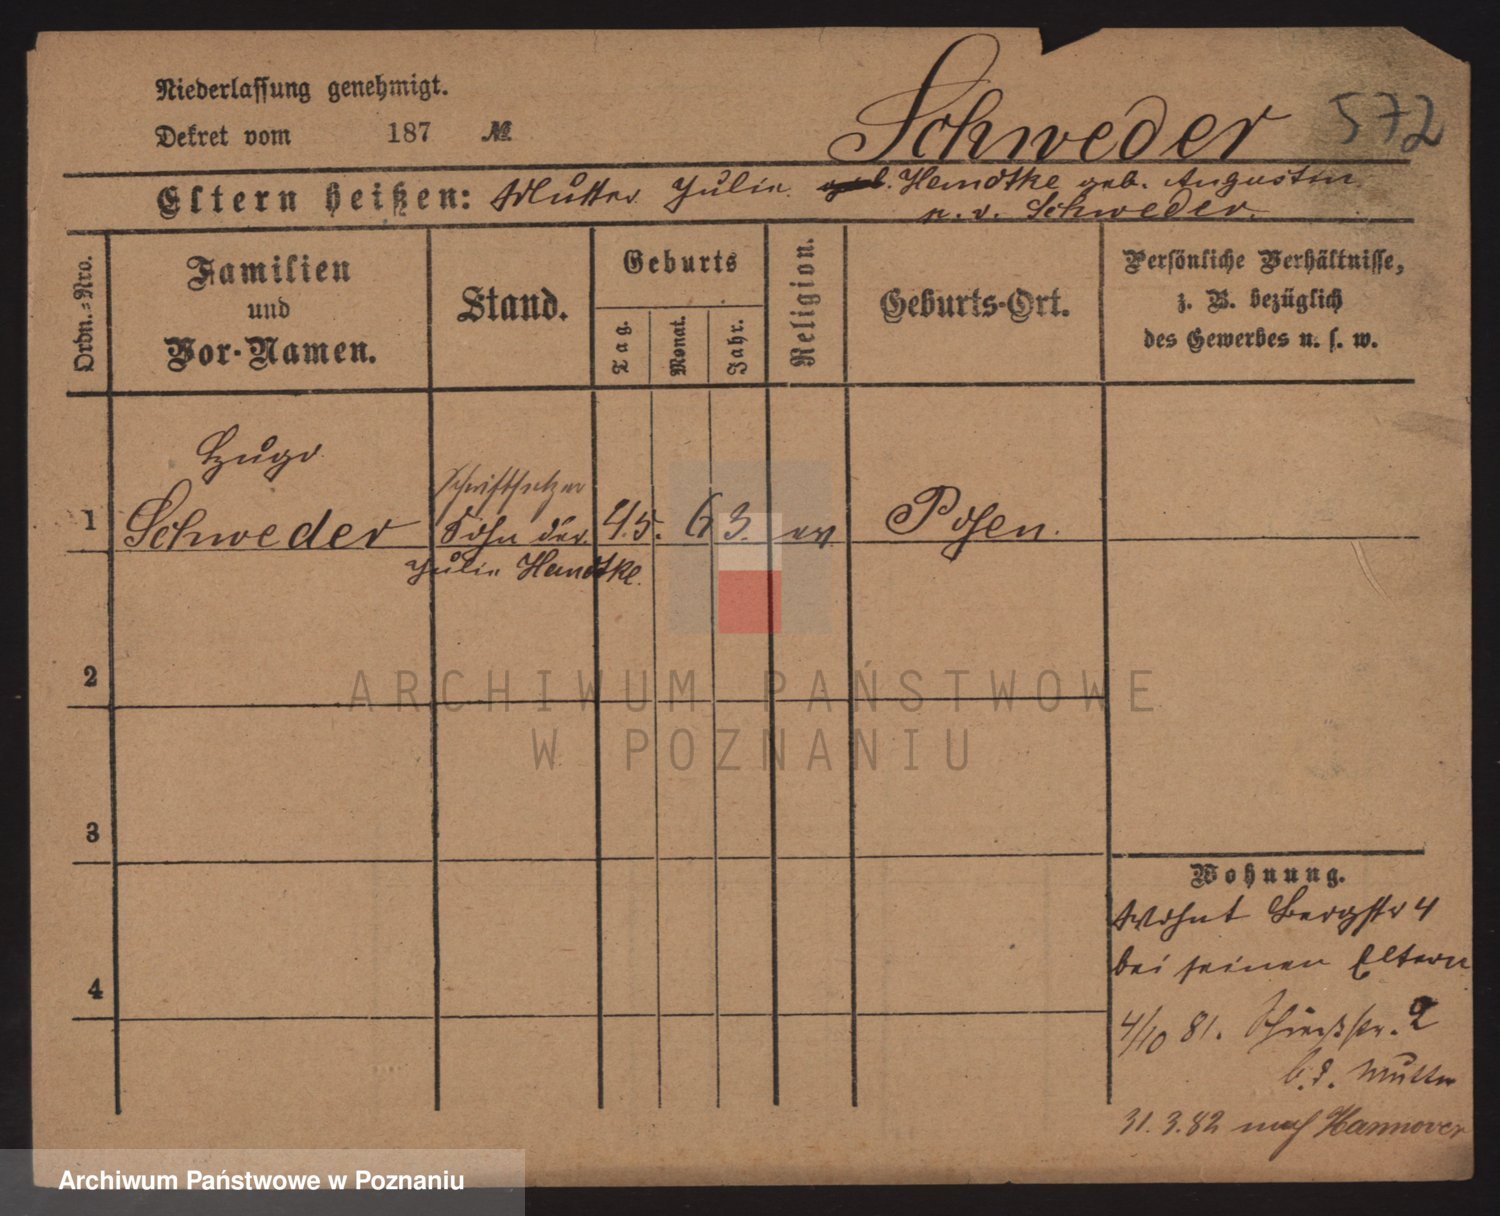 Niederlassung genehmigt.
Dekret vom 187 №
Schweder 572
Eltern heißen: Mutter Julie geb. Handtke geb. Augustin
n. v. Schweder.
Ordn.=Nro.
Familien
und
Vor-Namen.
Stand.
Geburts
Tag.
Monat.
Jahr.
Religion.
Geburts-Ort.
Persönliche Verhältnisse,
z. B. bezüglich
des Gewerbes u. s. w.
Hugo
Schriftsetzer
1 Schweder Sohn der 4. 5. 63. ev Posen.
Julie Handtke.
2
3
4
Wohnung.
Wohnt Bergstr 4
bei seinen Eltern
4/10 81. Schießstr. 2
b. d. Mutter
31. 3. 82 nach Hannover
ARCHIWUM PAŃSTWOWE
W POZNANIU
Archiwum Państwowe w Poznaniu